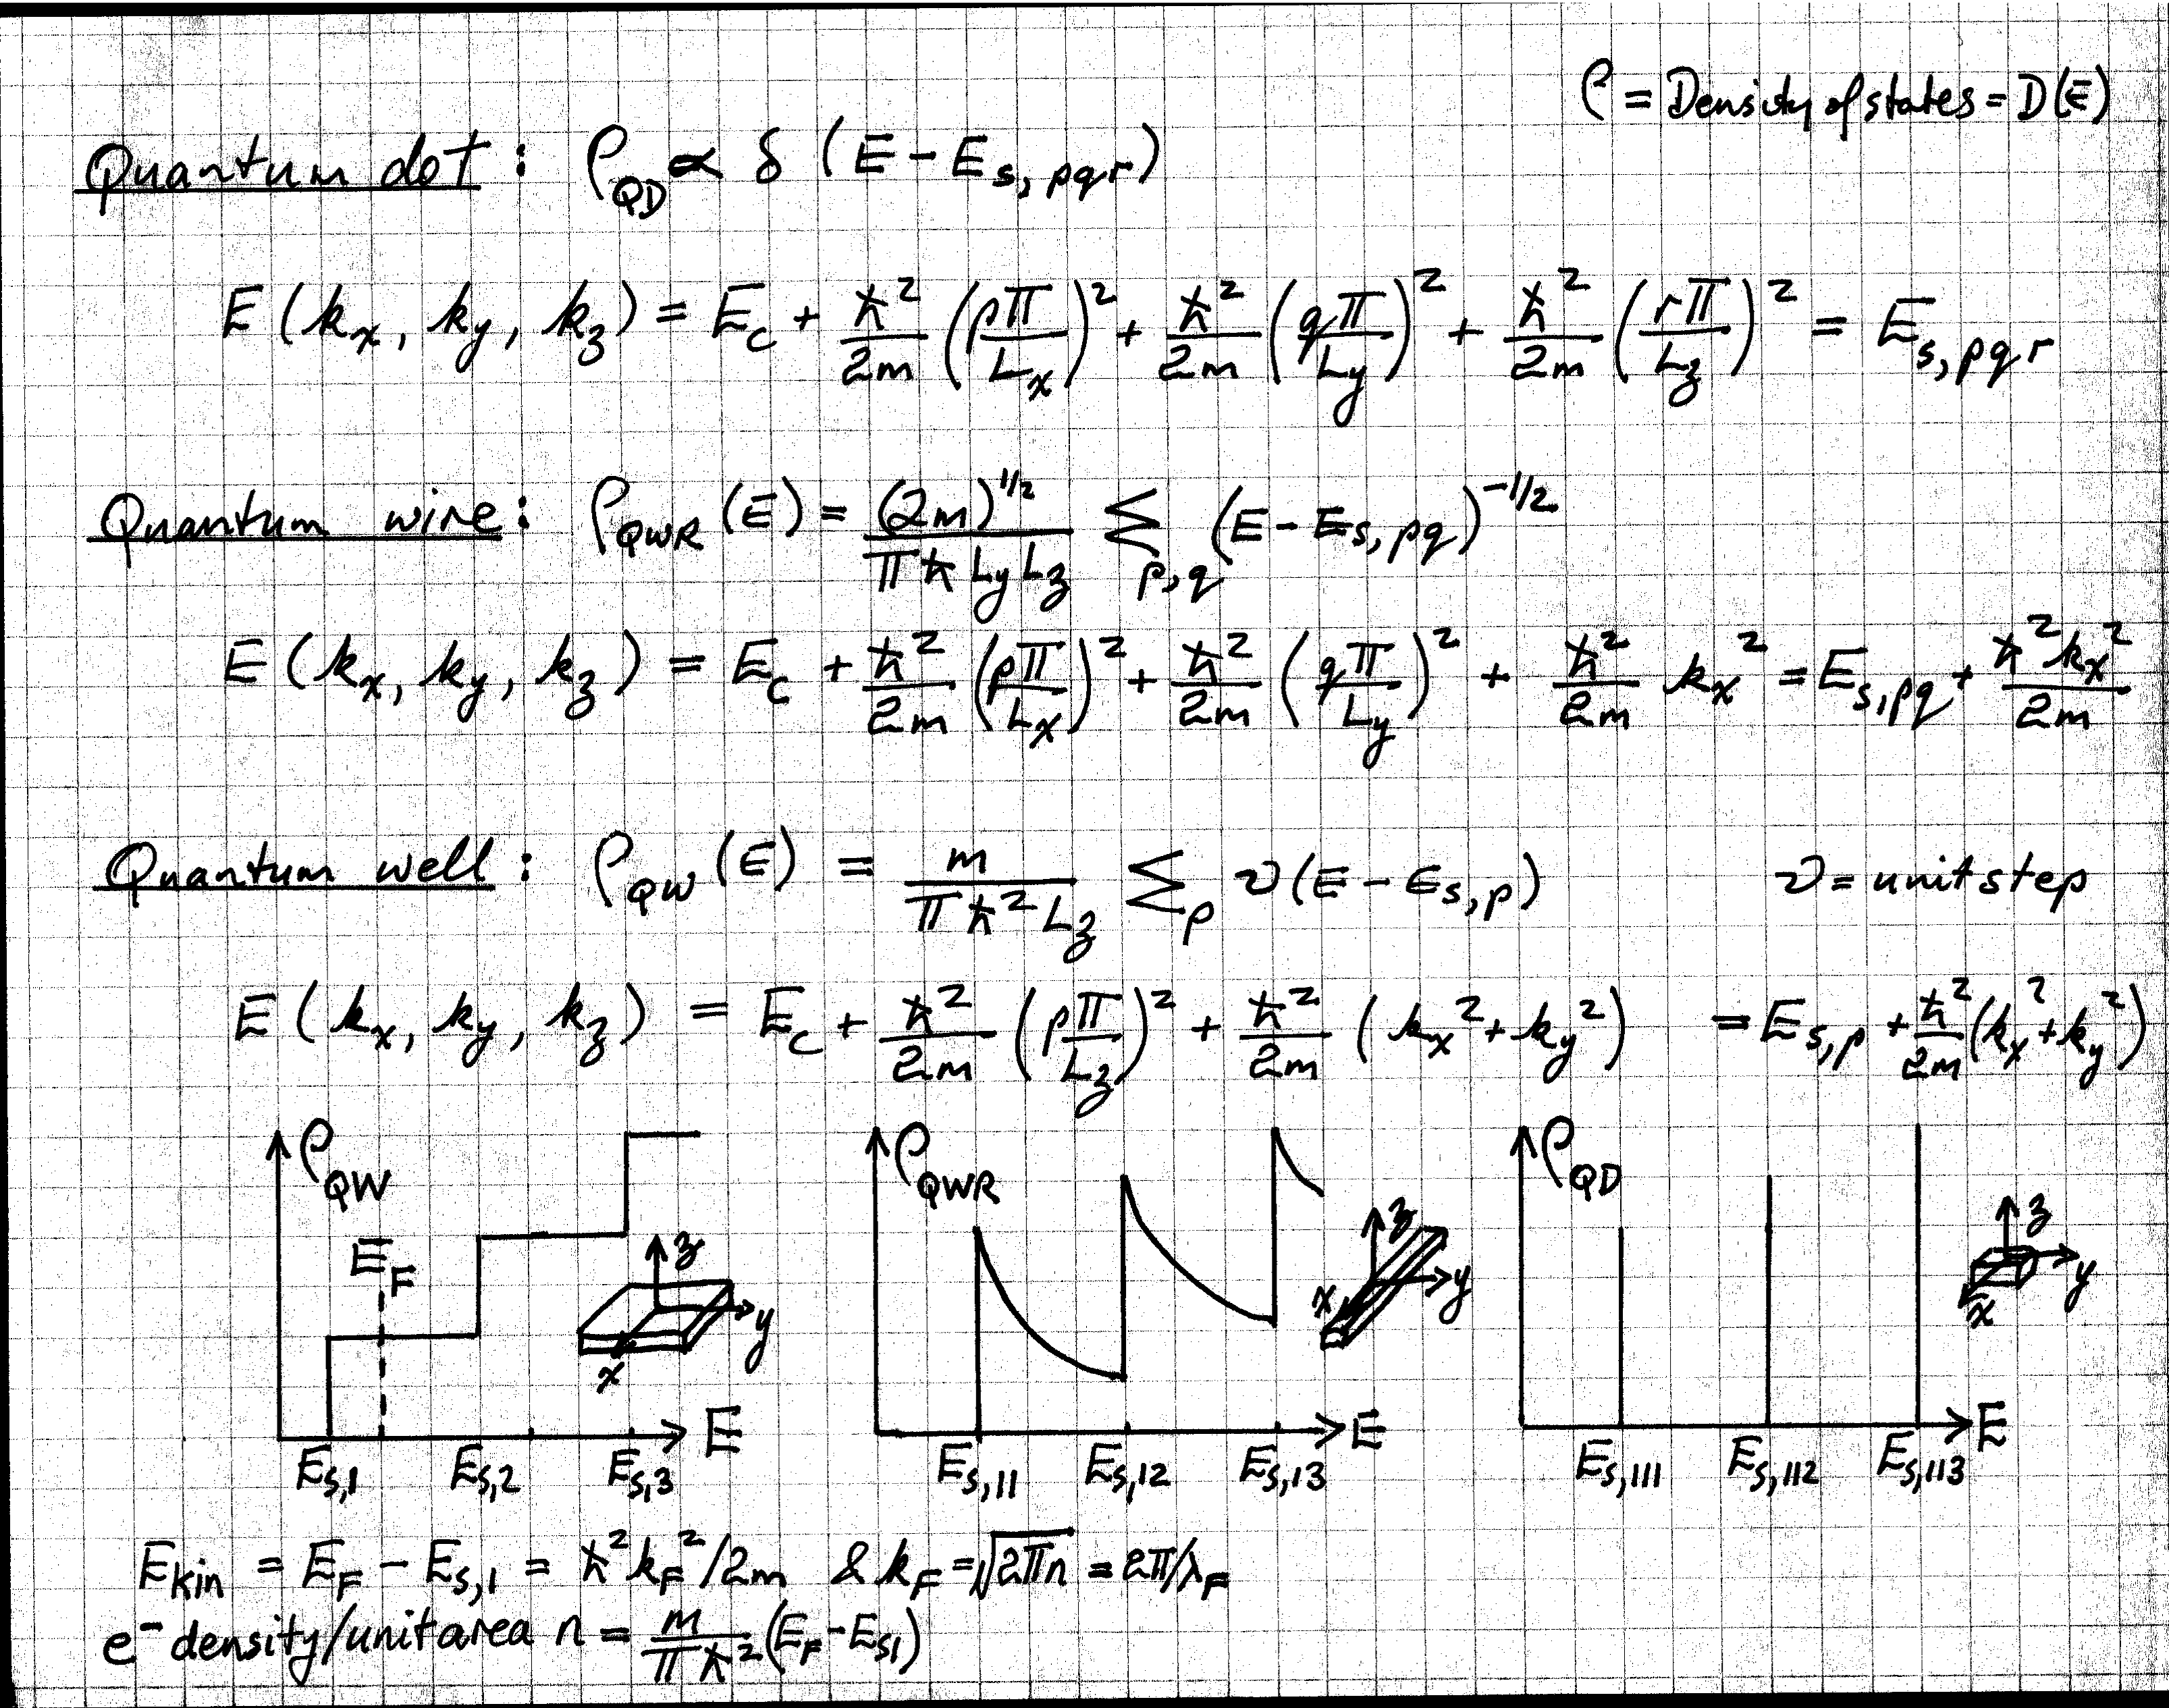 ρ = Density of states = D(E)
Quantum dot : ρ_QD ∝ δ (E - E_s,pqr)
E (k_x, k_y, k_z) = E_c + ħ²/2m (pπ/L_x)² + ħ²/2m (qπ/L_y)² + ħ²/2m (rπ/L_z)² = E_s,pqr
Quantum wire : ρ_QWR (E) = (2m)^1/2 / πħ L_y L_z Σ_p,q (E - E_s,pq)^-1/2
E (k_x, k_y, k_z) = E_c + ħ²/2m (pπ/L_x)² + ħ²/2m (qπ/L_y)² + ħ²/2m k_x² = E_s,pq + ħ²k_x²/2m
Quantum well : ρ_QW (E) = m / πħ² L_z Σ_p ϑ(E - E_s,p) ϑ = unit step
E (k_x, k_y, k_z) = E_c + ħ²/2m (pπ/L_z)² + ħ²/2m (k_x² + k_y²) = E_s,p + ħ²/2m (k_x² + k_y²)
ρ_QW E_F z y x E
E_s,1 E_s,2 E_s,3
ρ_QWR z y x E
E_s,11 E_s,12 E_s,13
ρ_QD z y x E
E_s,111 E_s,112 E_s,113
E_kin = E_F - E_s,1 = ħ²k_F²/2m & k_F = √2πn = 2π/λ_F
e⁻ density/unit area n = m/πħ² (E_F - E_s1)